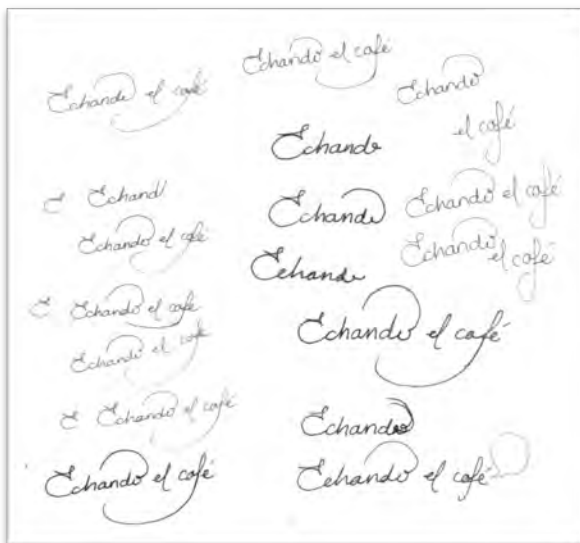 Echando el café
E Echand
Echando el café
E Echando el café
Echando el café
E Echando el café
Echando el café
Echando el café
Echando
el café
Echando
Echando
Echando el café
Echando
Echando
el café
Echando el café
Echando
Echando el café